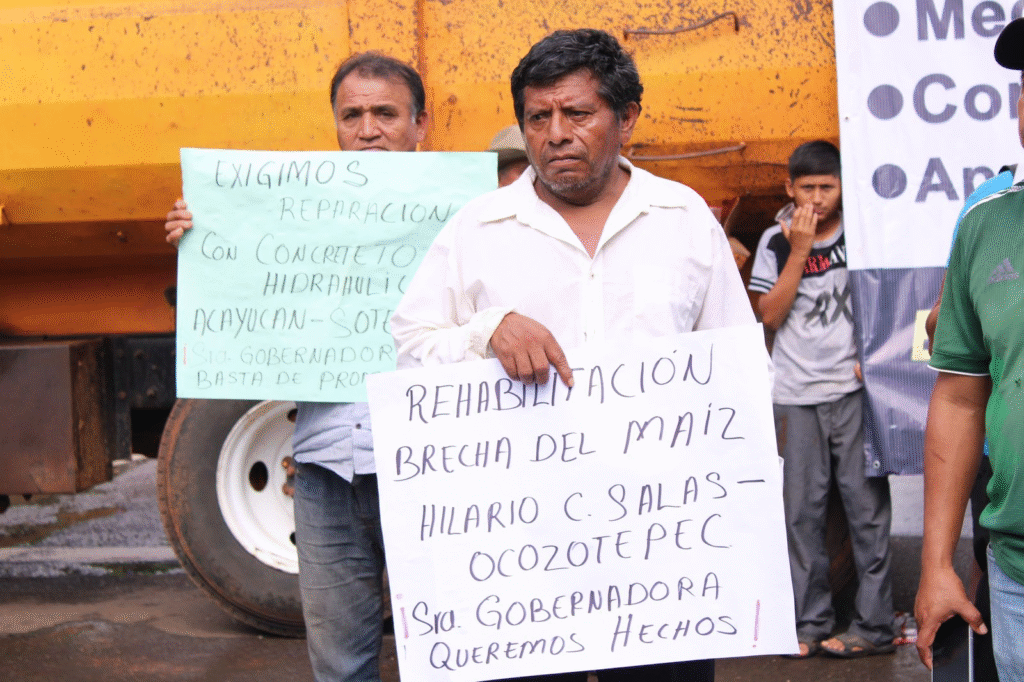 EXIGIMOS
REPARACION
CON CONCRETO
HIDRAHULIC
ACAYUCAN-SOTE
¡Sra. GOBERNADORA
BASTA DE PROM
REHABILITACIÓN
BRECHA DEL MAÍZ
HILARIO C. SALAS-
OCOZOTEPEC
¡Sra. GOBERNADORA
QUEREMOS HECHOS!
• Med
• Con
• Ap